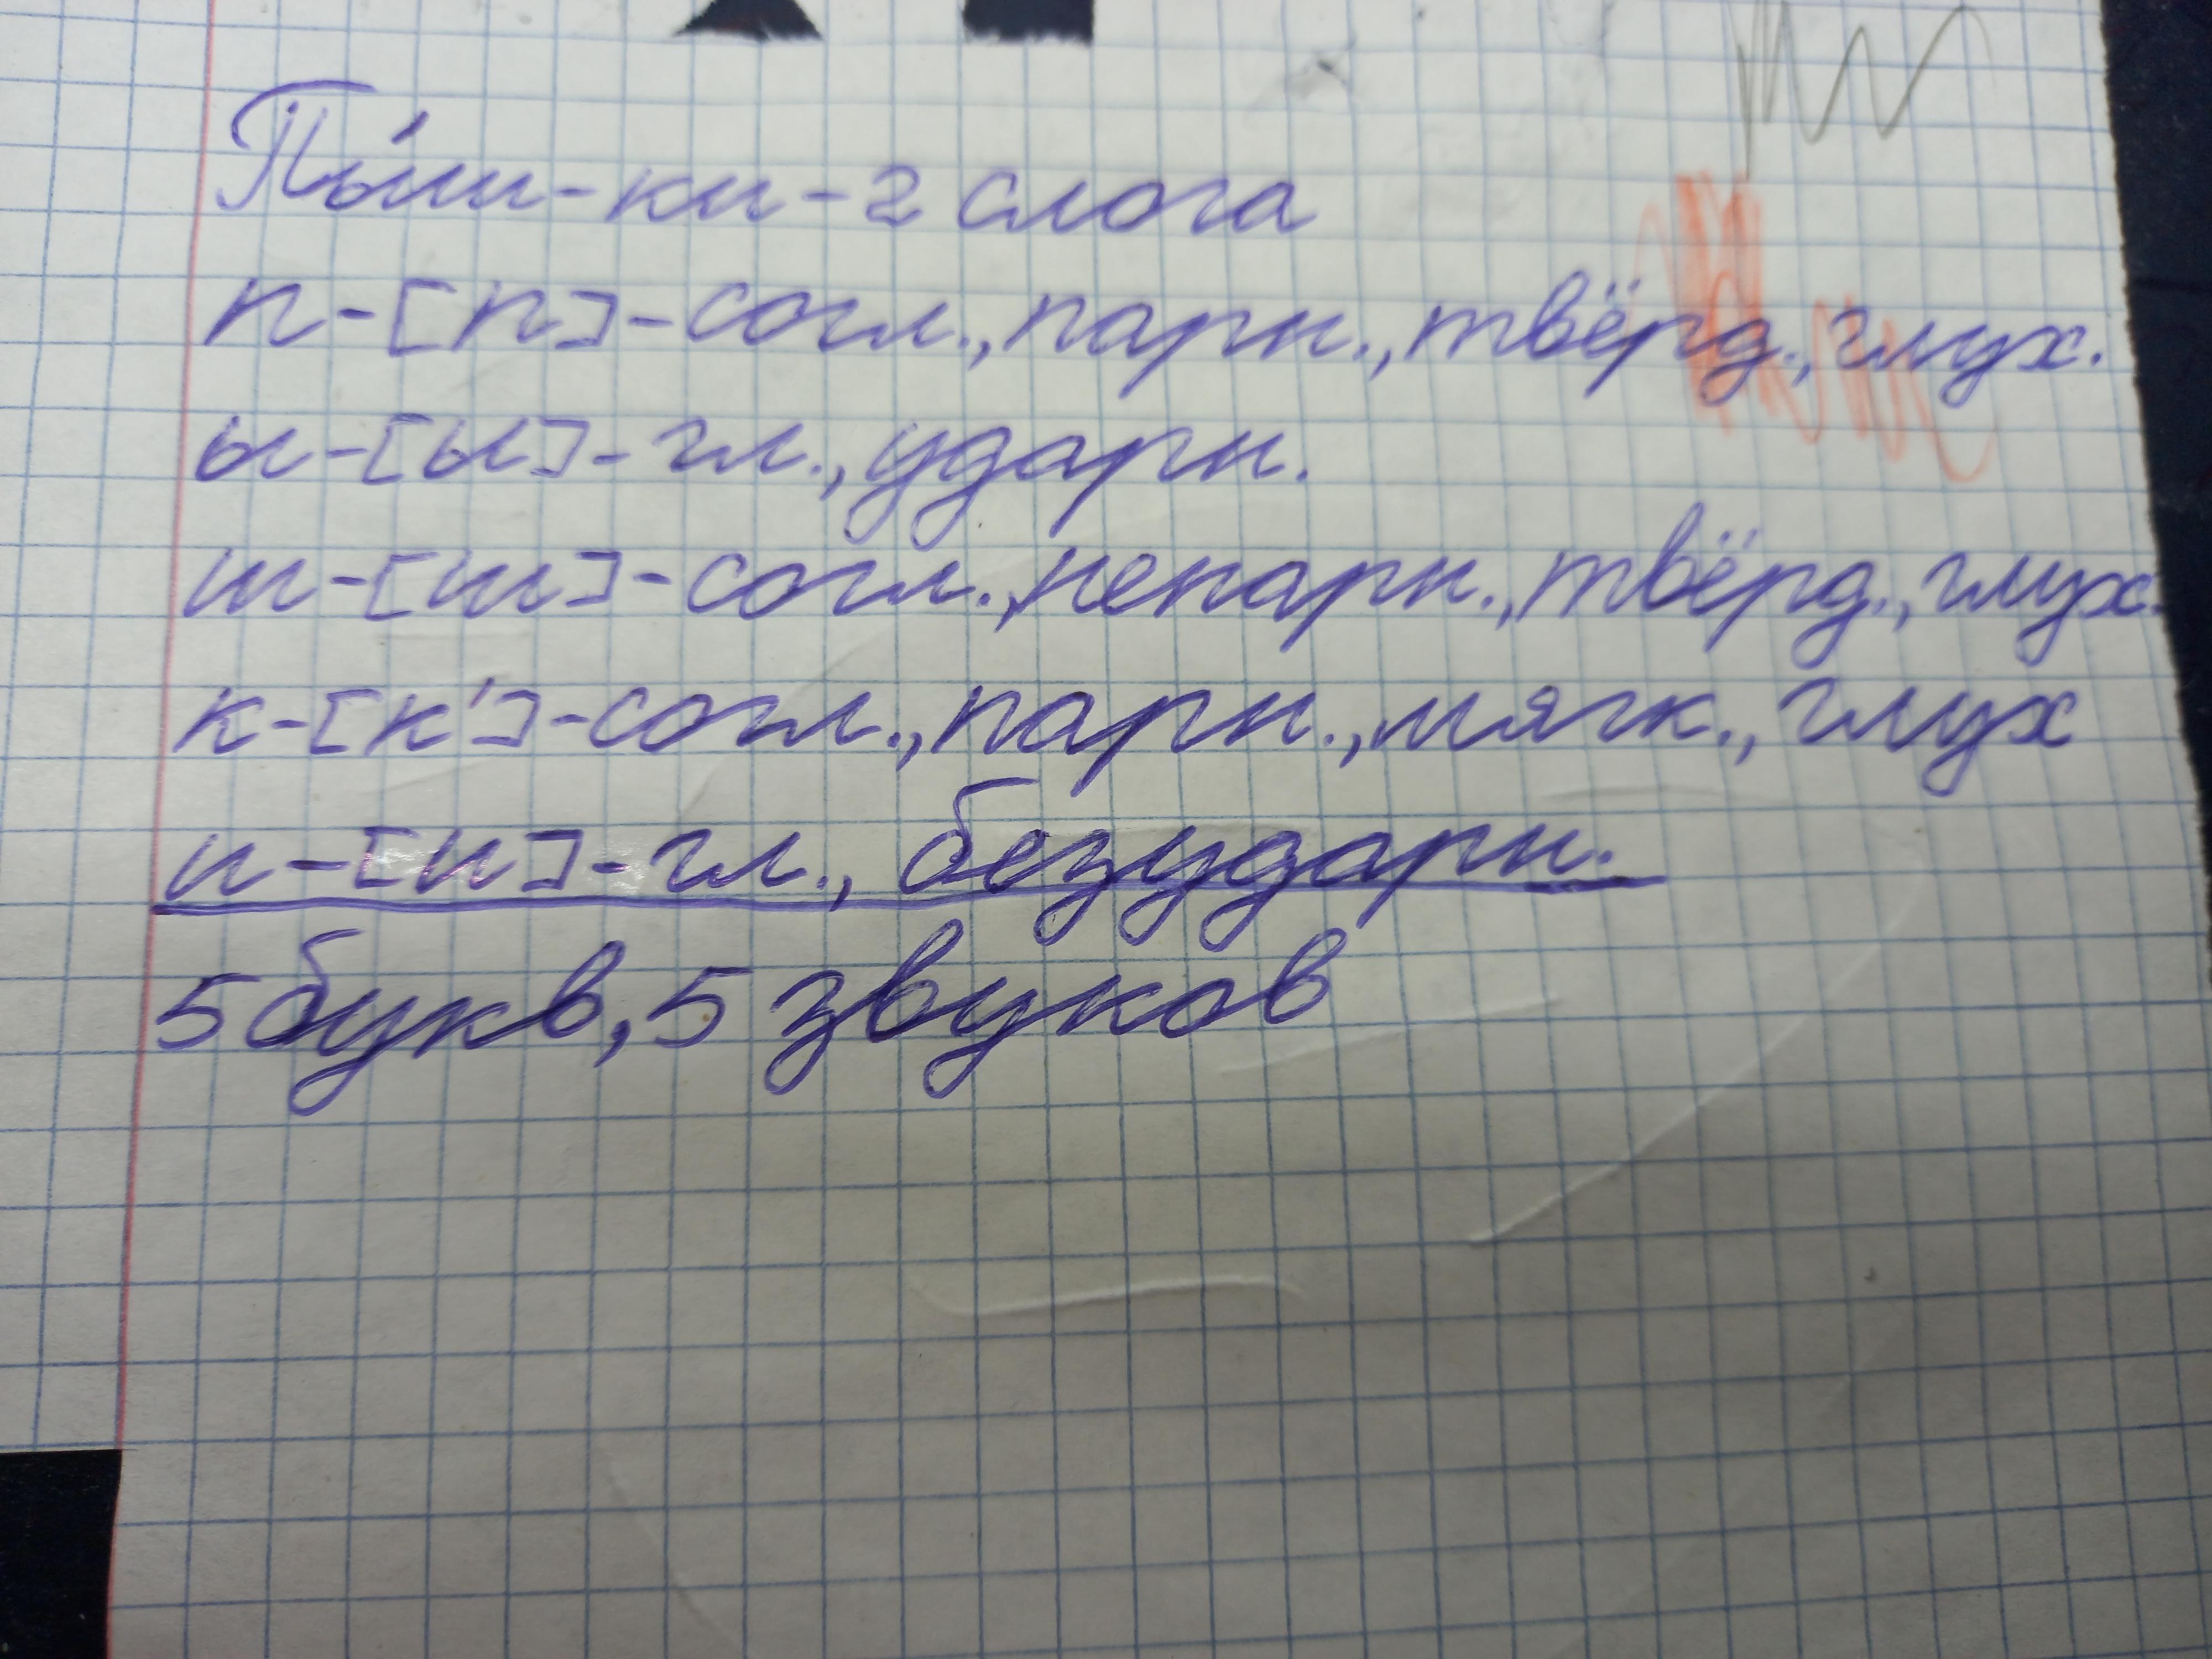 Пы́ш-ки-2 слога
п-[п]-согл., парн., твёрд., глух.
ы-[ы]-гл., ударн.
ш-[ш]-согл., непарн., твёрд., глух.
к-[к']-согл., парн., мягк., глух
и-[и]-гл., безударн.
5 букв, 5 звуков